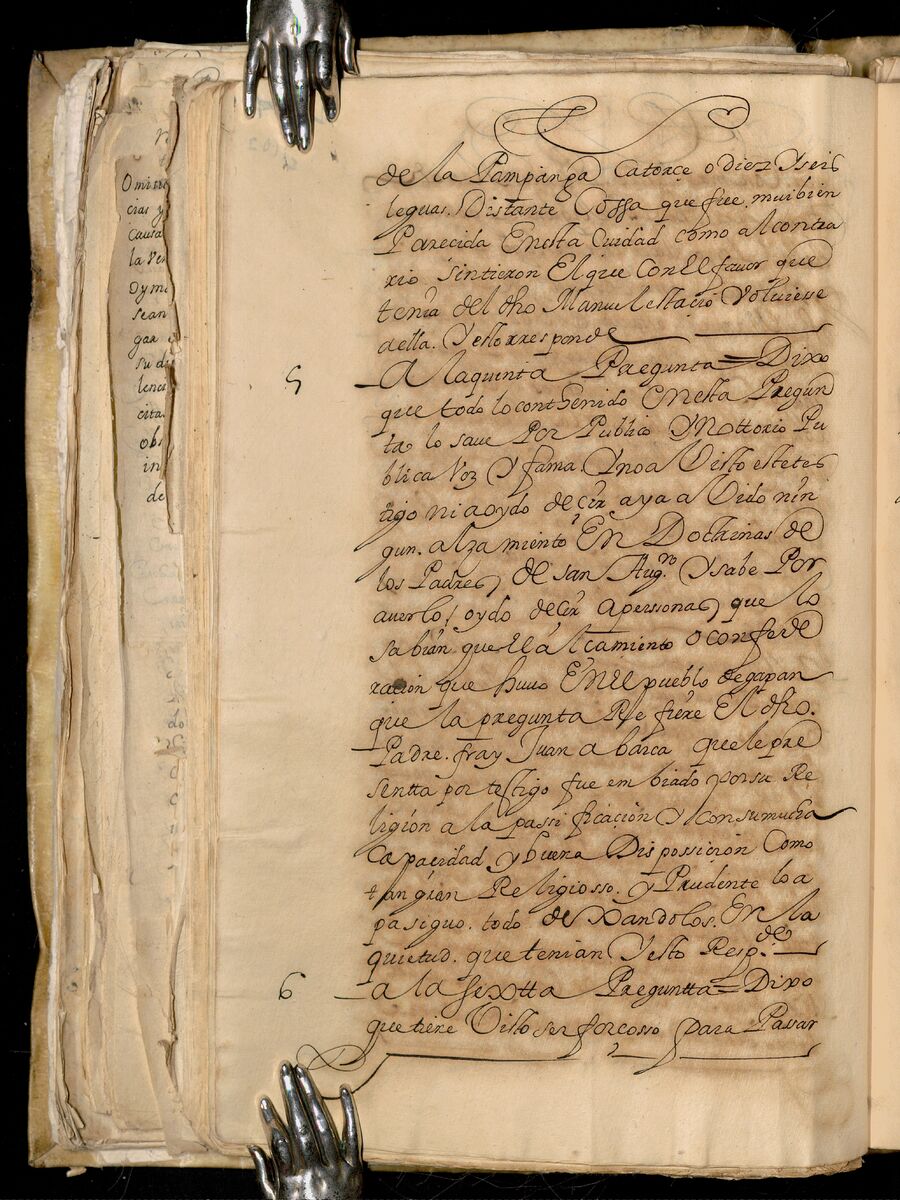 Omitie
cias y
Causa
la Ven
Dyme
sean
gaa
su di
lenc
cita
obs
in
de
de la Pampanga Catorce o diez Yseis
leguas. Distante Cossa que fue. muibien
Parecida Enesta Ciudad como alcontra
rio sintieron El que Con El favor que
tenia del dho Manuel estacio Volviesse
aella. Yestorresponde
5 A laquinta Pregunta = Dixo
que todo lo conthenido Enesta Pregun
ta lo save Por Publico YNottorio Pu
blica Voz Y fama. Ynoa Visto estetes
tigo ni aoydo decir aya avido nin
gun. alzamiento En Doctrinas de
los Padres, de san Augro. Ysabe Por
averlo oydo decir apersonas, que lo
sabian que El alcamiento o confede
racion que huvo En El pueblo degapan
que la pregunta Refiere El dho.
Padre. fray Juan abarca que le pre
sentta por testigo fue embiado porsu Re
ligion a la passificacion Y consumucha
Capacidad y buena Dispossicion Como
tan gran Religiosso. y Prudente lo a
pasiguo. todo dexandolos. En la
quietud. que tenian Yesto Respde.
6 a la sextta Preguntta = Dixo
que tiene Visto ser forcosso para Pasar